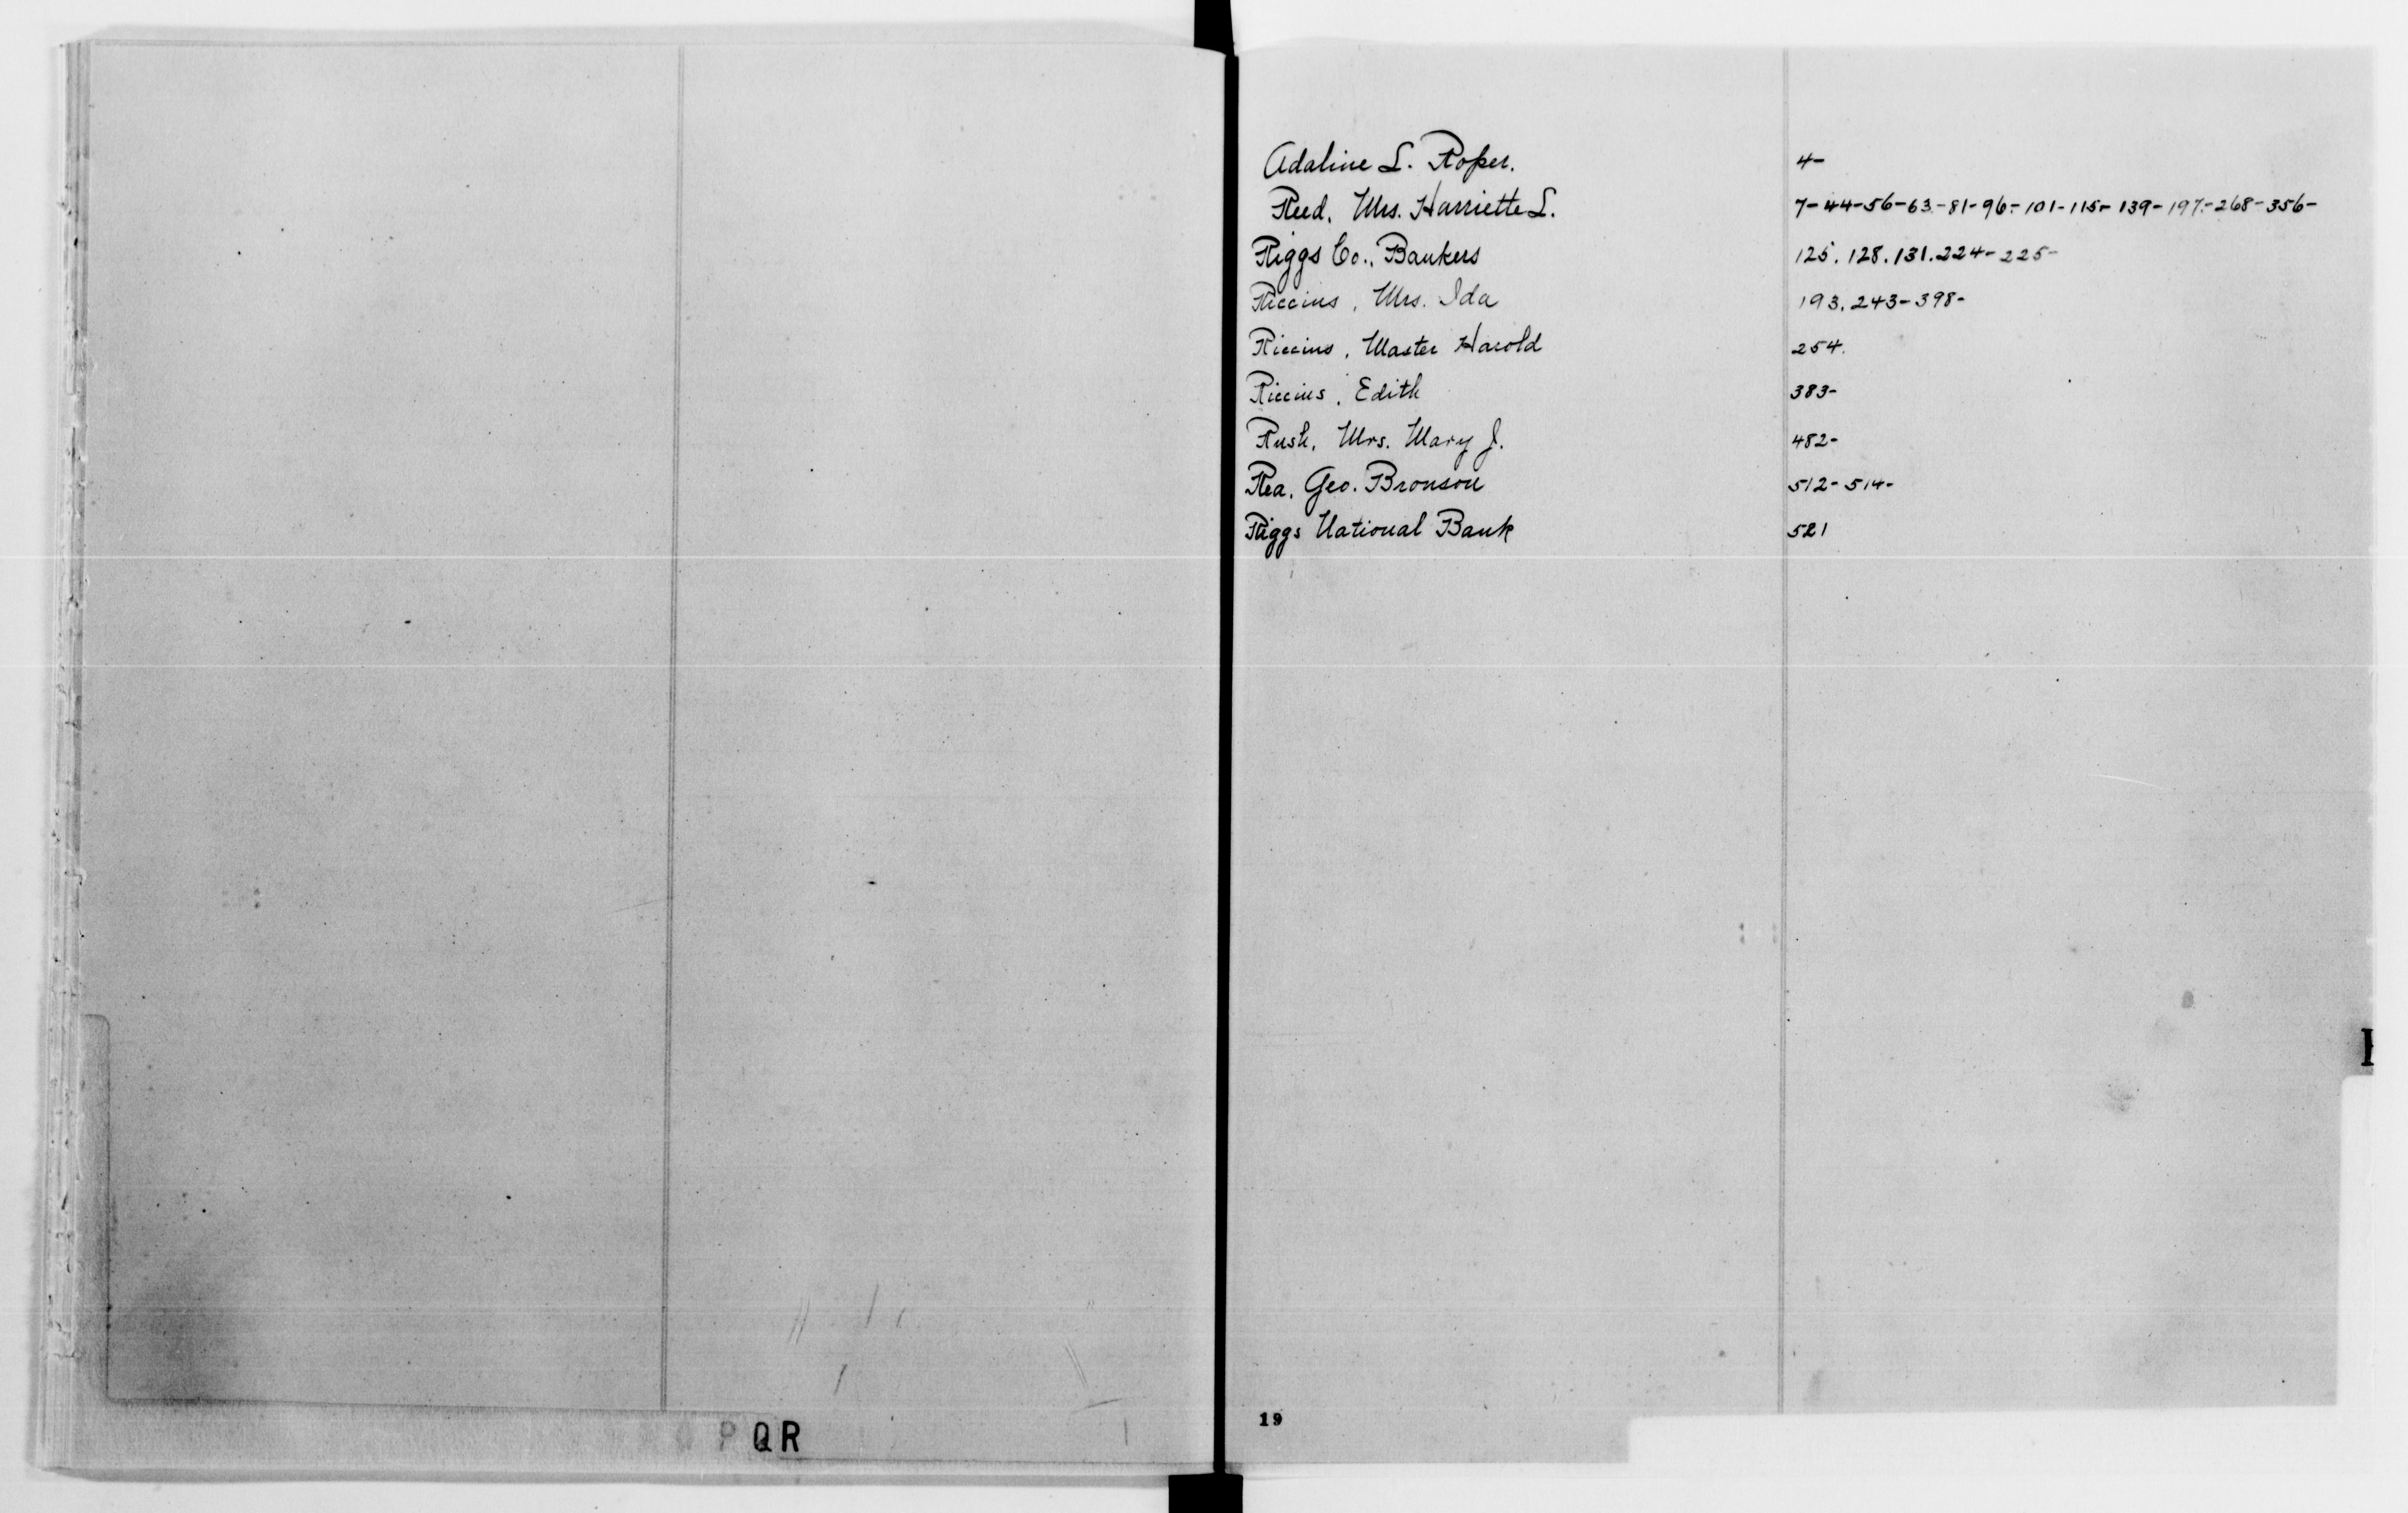 Adaline L. Roper. 4-
Reed, Mrs. Harriette L. 7-44-56-63-81-96-101-115-139-197-268-356-
Riggs Co., Bankers 125. 128. 131. 224-225-
Riccius, Mrs. Ida 193. 243-398-
Riccius, Master Harold 254.
Riccius, Edith 383-
Rush, Mrs. Mary J. 482-
Rea, Geo. Bronson 512-514-
Riggs National Bank 521
P Q R
19